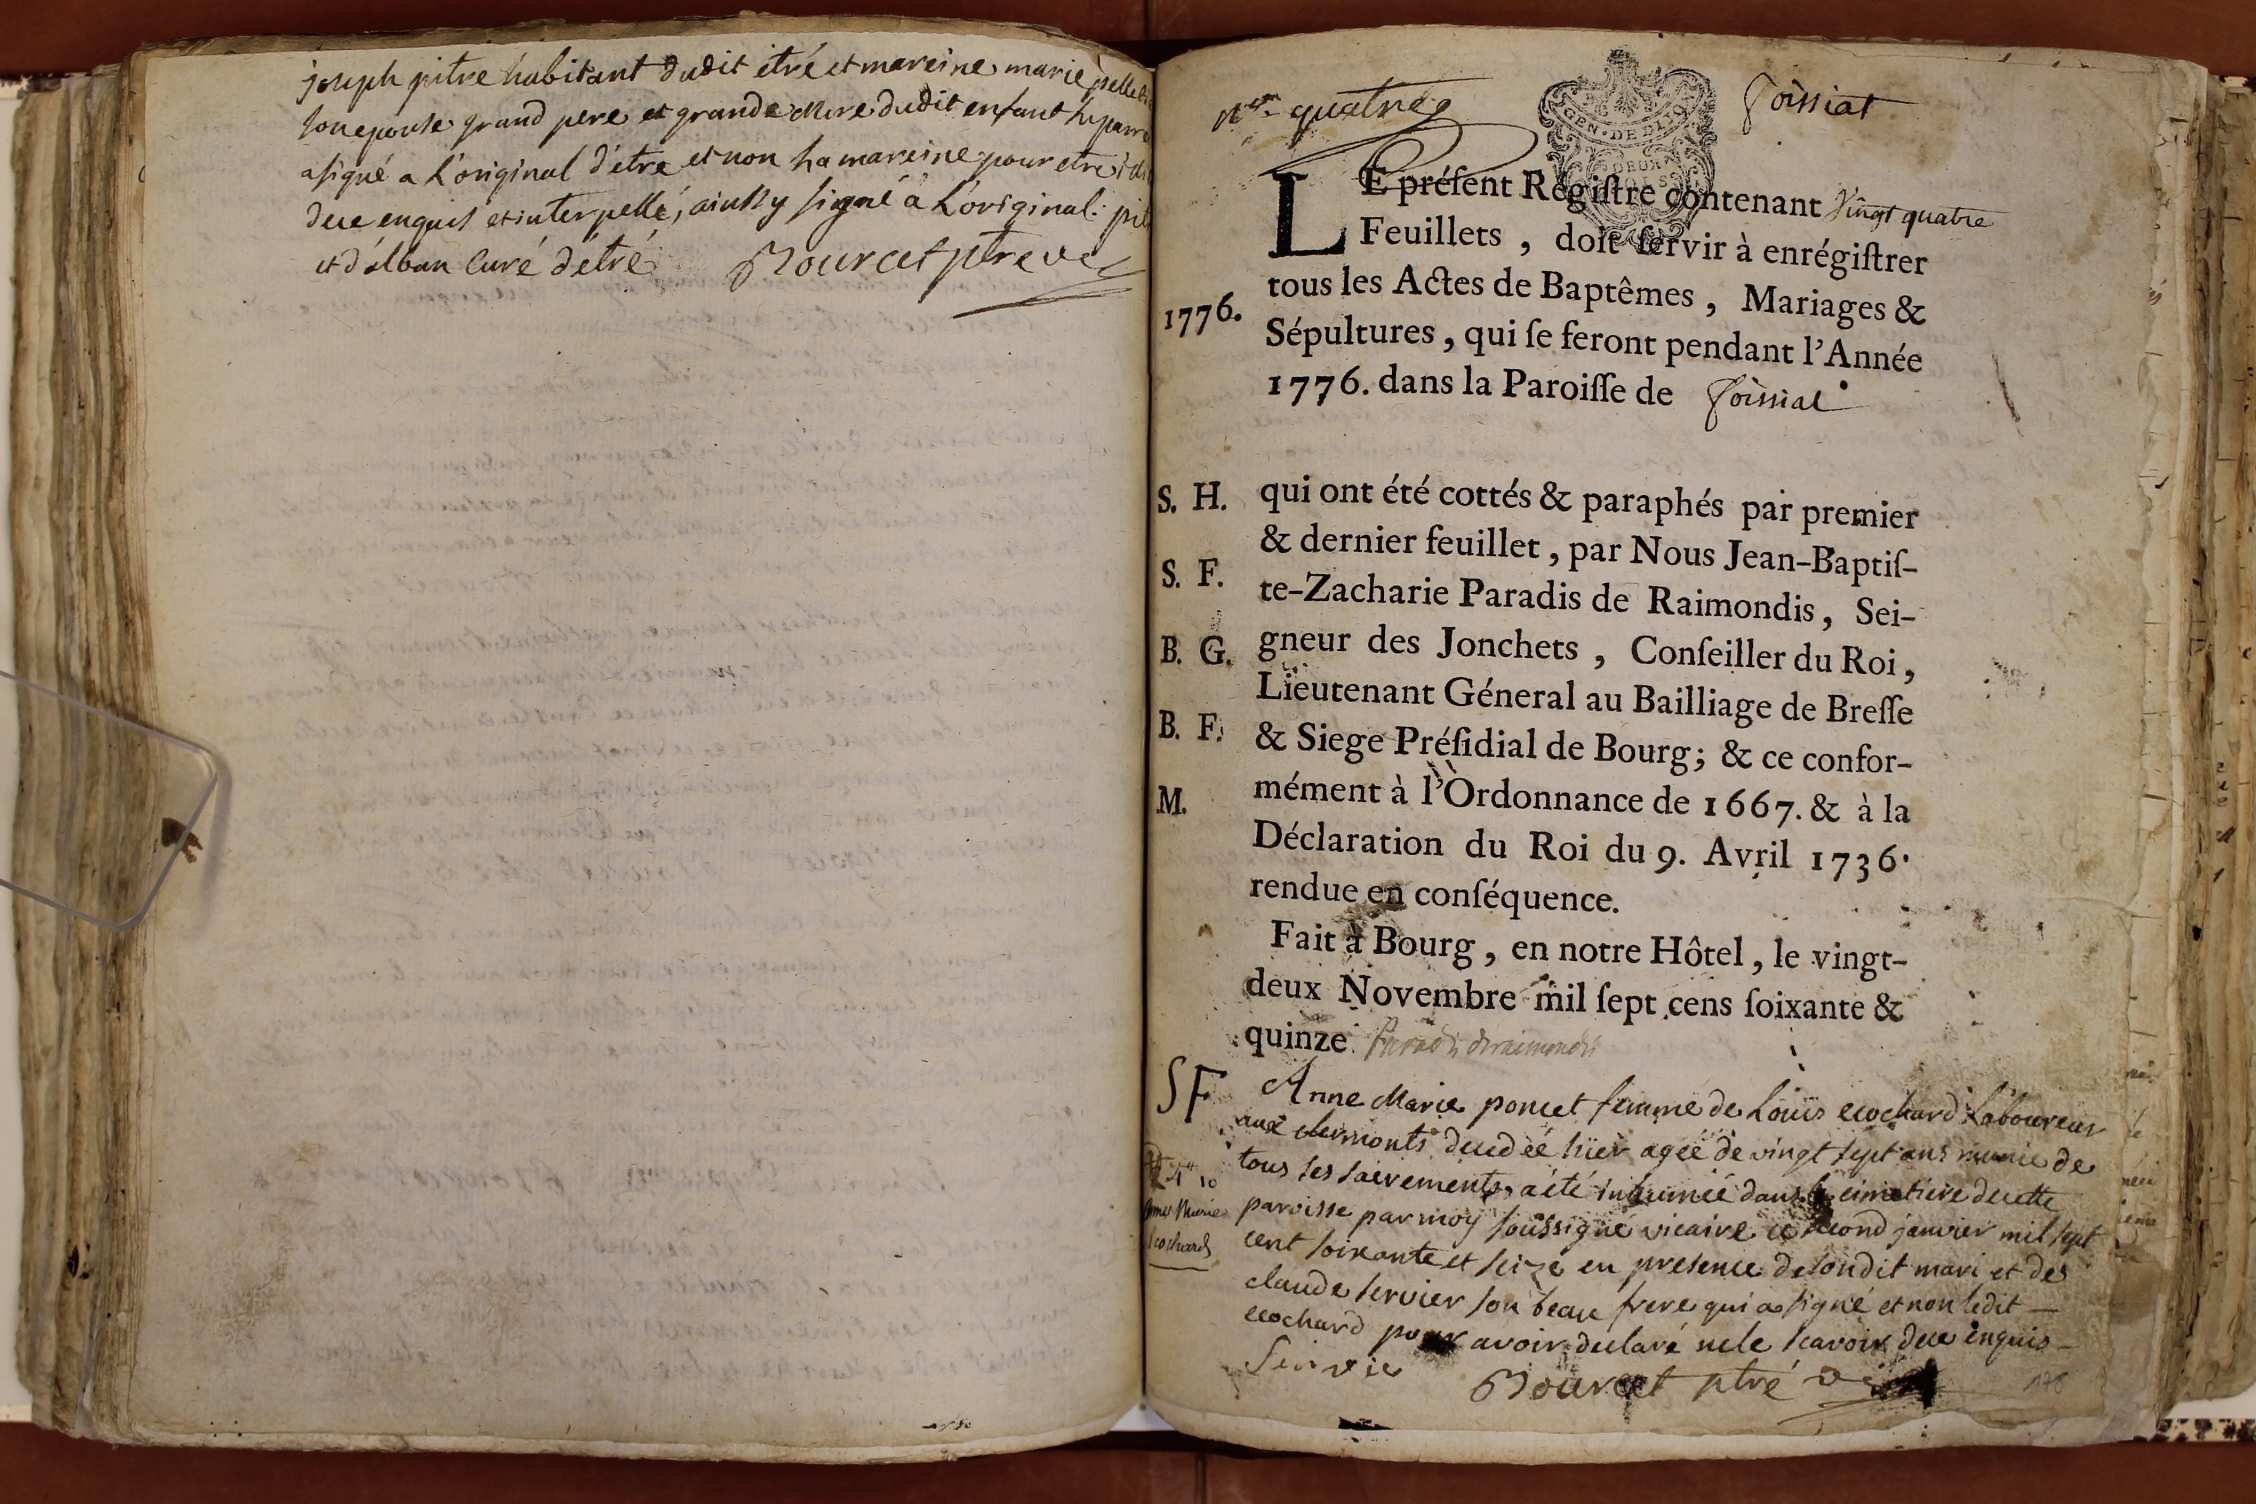 joseph pitre habitant dudit étré et mareine marie
son epouse grand pere et grande Mere dudit enfant le parr
a signé a L'original d'etre et non la mareine pour etre
deue enquis et interpellé, ainssy signé a L'original: pit
et d'alban Curé d'étré Bourcet ptre vic
quatre
GEN. DE DIJON
DEUX
SOLS
Foissiat
LE présent Régiſtre contenant Vingt quatre
Feuillets, doit ſervir à enrégiſtrer
tous les Actes de Baptêmes, Mariages &
1776.
Sépultures, qui ſe feront pendant l'Année
1776. dans la Paroiſſe de Foissiat
S. H. qui ont été cottés & paraphés par premier
& dernier feuillet, par Nous Jean-Baptiſ-
S. F. te-Zacharie Paradis de Raimondis, Sei-
B. G. gneur des Jonchets, Conſeiller du Roi,
Lieutenant Géneral au Bailliage de Breſſe
B. F. & Siege Préſidial de Bourg; & ce confor-
M. mément à l'Ordonnance de 1667. & à la
Déclaration du Roi du 9. Avril 1736.
rendue en conſéquence.
Fait à Bourg, en notre Hôtel, le vingt-
deux Novembre mil ſept cens ſoixante &
quinze. Paradis deraimondis
SF Anne Marie poncet femme de Louis ecochard Laboureur
aux clermonts decedéé hier agéé de vingt sept ans munie de
tous ses sacrements, a été inhuméé dans le cimetiere de cette
Anne Marie
paroisse par moy soussigné vicaire ce second janvier mil sept
Ecochard
cent soixante et seize en presence de sondit mari et de
claude servier son beau frere qui a signé et non ledit
ecochard pour avoir declaré ne le scavoir deue enquis
Servie Bourcet ptré vic
178